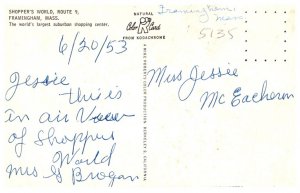 SHOPPER'S WORLD, ROUTE 9,
FRAMINGHAM, MASS.
The world's largest suburban shopping center.
NATURAL
Color Card
FROM KODACHROME
Framingham
Mass
5135
6/20/53
Jessie
this is
in air View
of Shoppers
World
Mrs G Brogan
Miss Jessie
McEachern